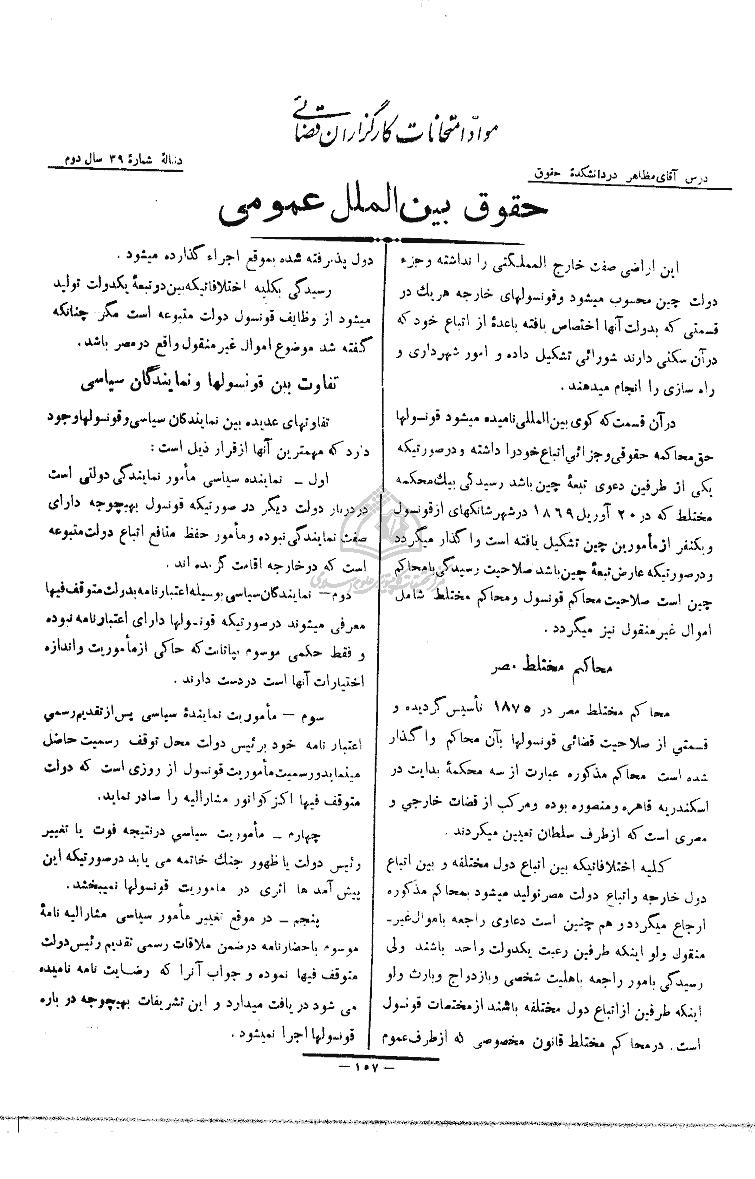 مواد امتحانات کارگزاران قضائی
درس آقای مظاهر در دانشکدهٔ حقوق
دنبالهٔ شمارهٔ ۳۹ سال دوم
حقوق بین‌الملل عمومی
این اراضی صفت خارج المملکتی را نداشته و جزء
دولت چین محسوب میشود و قونسولهای خارجه هریك در
قسمتی که بدولت آنها اختصاص یافته باعدهٔ از اتباع خود که
در آن سکنی دارند شورائی تشکیل داده و امور شهرداری و
راه سازی را انجام میدهند .
در آن قسمت که کوی بین‌المللی نامیده میشود قونسولها
حق محاکمه حقوقی و جزائی اتباع خود را داشته و در صورتیکه
یکی از طرفین دعوی تبعهٔ چین باشد رسیدگی بیك محکمه
مختلط که در ۲۰ آوریل ۱۸۶۹ در شهر شانگهای از قونسول
و یکنفر از مأمورین چین تشکیل یافته است واگذار میگردد
و در صورتیکه عارض تبعهٔ چین باشد صلاحیت رسیدگی با محاکم
چین است صلاحیت محاکم قونسول و محاکم مختلط شامل
اموال غیر منقول نیز میگردد .
محاکم مختلط مصر
محاکم مختلط مصر در ۱۸۷۵ تأسیس گردیده و
قسمتی از صلاحیت قضائی قونسولها بآن محاکم واگذار
شده است محاکم مذکوره عبارت از سه محکمهٔ بدایت در
اسکندریه قاهره و منصوره بوده و مرکب از قضات خارجی و
مصری است که از طرف سلطان تعیین میگردند .
کلیه اختلافاتیکه بین اتباع دول مختلفه و بین اتباع
دول خارجه و اتباع دولت مصر تولید میشود بمحاکم مذکوره
ارجاع میگردد و هم چنین است دعاوی راجعه باموال غیر-
منقول ولو اینکه طرفین رعیت یکدولت واحد باشند ولی
رسیدگی بامور راجعه باهلیت شخصی و بازدواج و بارث ولو
اینکه طرفین از اتباع دول مختلفه باشند از مختصات قونسول
است . در محاکم مختلط قانون مخصوصی که از طرف عموم
دول پذیرفته شده بموقع اجراء گذارده میشود .
رسیدگی بکلیه اختلافاتیکه بین دو تبعهٔ یکدولت تولید
میشود از وظایف قونسول دولت متبوعه است مگر چنانکه
گفته شد موضوع اموال غیر منقول واقع در مصر باشد .
تفاوت بین قونسولها و نمایندگان سیاسی
تفاوتهای عدیده بین نمایندگان سیاسی و قونسولها وجود
دارد که مهمترین آنها از قرار ذیل است :
اول ـ نماینده سیاسی مأمور نمایندگی دولتی است
در دربار دولت دیگر در صورتیکه قونسول بهیچوجه دارای
صفت نمایندگی نبوده و مأمور حفظ منافع اتباع دولت متبوعه
است که در خارجه اقامت گزیده اند .
دوم ـ نمایندگان سیاسی بوسیله اعتبار نامه بدولت متوقف فیها
معرفی میشوند در صورتیکه قونسولها دارای اعتبار نامه نبوده
و فقط حکمی موسوم بپاتانت که حاکی از مأموریت و اندازه
اختیارات آنها است در دست دارند .
سوم ـ مأموریت نمایندهٔ سیاسی پس از تقدیم رسمی
اعتبار نامه خود برئیس دولت محل توقف رسمیت حاصل
مینماید و رسمیت مأموریت قونسول از روزی است که دولت
متوقف فیها اکزکواتور مشارالیه را صادر نماید .
چهارم ـ مأموریت سیاسی در نتیجه فوت یا تغییر
رئیس دولت یا ظهور جنك خاتمه می یابد در صورتیکه این
پیش آمد ها اثری در ماموریت قونسولها نمیبخشد .
پنجم ـ در موقع تغییر مأمور سیاسی مشارالیه نامهٔ
موسوم باحضار نامه در ضمن ملاقات رسمی تقدیم رئیس دولت
متوقف فیها نموده و جواب آنرا که رضایت نامه نامیده
می شود دریافت میدارد و این تشریفات بهیچوجه در باره
قونسولها اجرا نمیشود .
ـ ۱۵۷ ـ